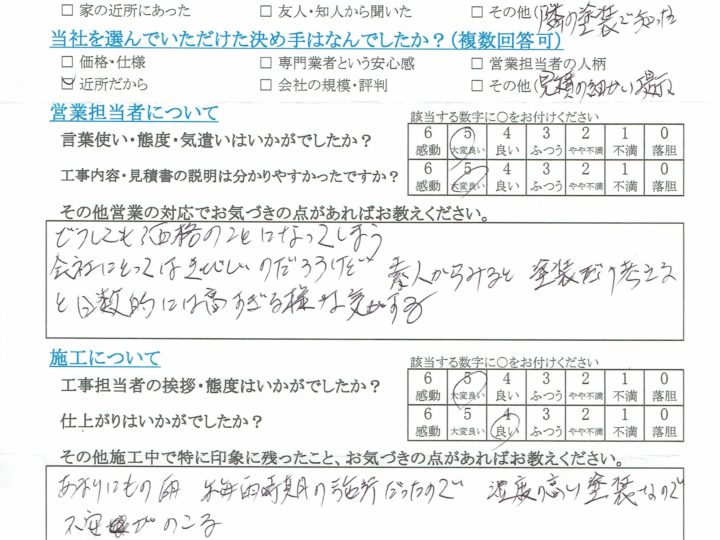 □ 家の近所にあった □ 友人・知人から聞いた □ その他(隣の塗装で知った
当社を選んでいただけた決め手はなんでしたか？(複数回答可)
□ 価格・仕様 □ 専門業者という安心感 □ 営業担当者の人柄
☑ 近所だから □ 会社の規模・評判 □ その他(見積の細かい提示
営業担当者について 該当する数字に○をお付けください
言葉使い・態度・気遣いはいかがでしたか？ 6 感動 5 大変良い 4 良い 3 ふつう 2 やや不満 1 不満 0 落胆
工事内容・見積書の説明は分かりやすかったですか？ 6 感動 5 大変良い 4 良い 3 ふつう 2 やや不満 1 不満 0 落胆
その他営業の対応でお気づきの点があればお教えください。
どうしても価格のことになってしまう
会社にとってはきびしいのだろうけど 素人からみると 塗装だけ考える
と日数的には高すぎる様な気がする
施工について 該当する数字に○をお付けください
工事担当者の挨拶・態度はいかがでしたか？ 6 感動 5 大変良い 4 良い 3 ふつう 2 やや不満 1 不満 0 落胆
仕上がりはいかがでしたか？ 6 感動 5 大変良い 4 良い 3 ふつう 2 やや不満 1 不満 0 落胆
その他施工中で特に印象に残ったこと、お気づきの点があればお教えください。
あまりにもの雨 時期の だったので 湿度の高い塗装なので
不安がのこる